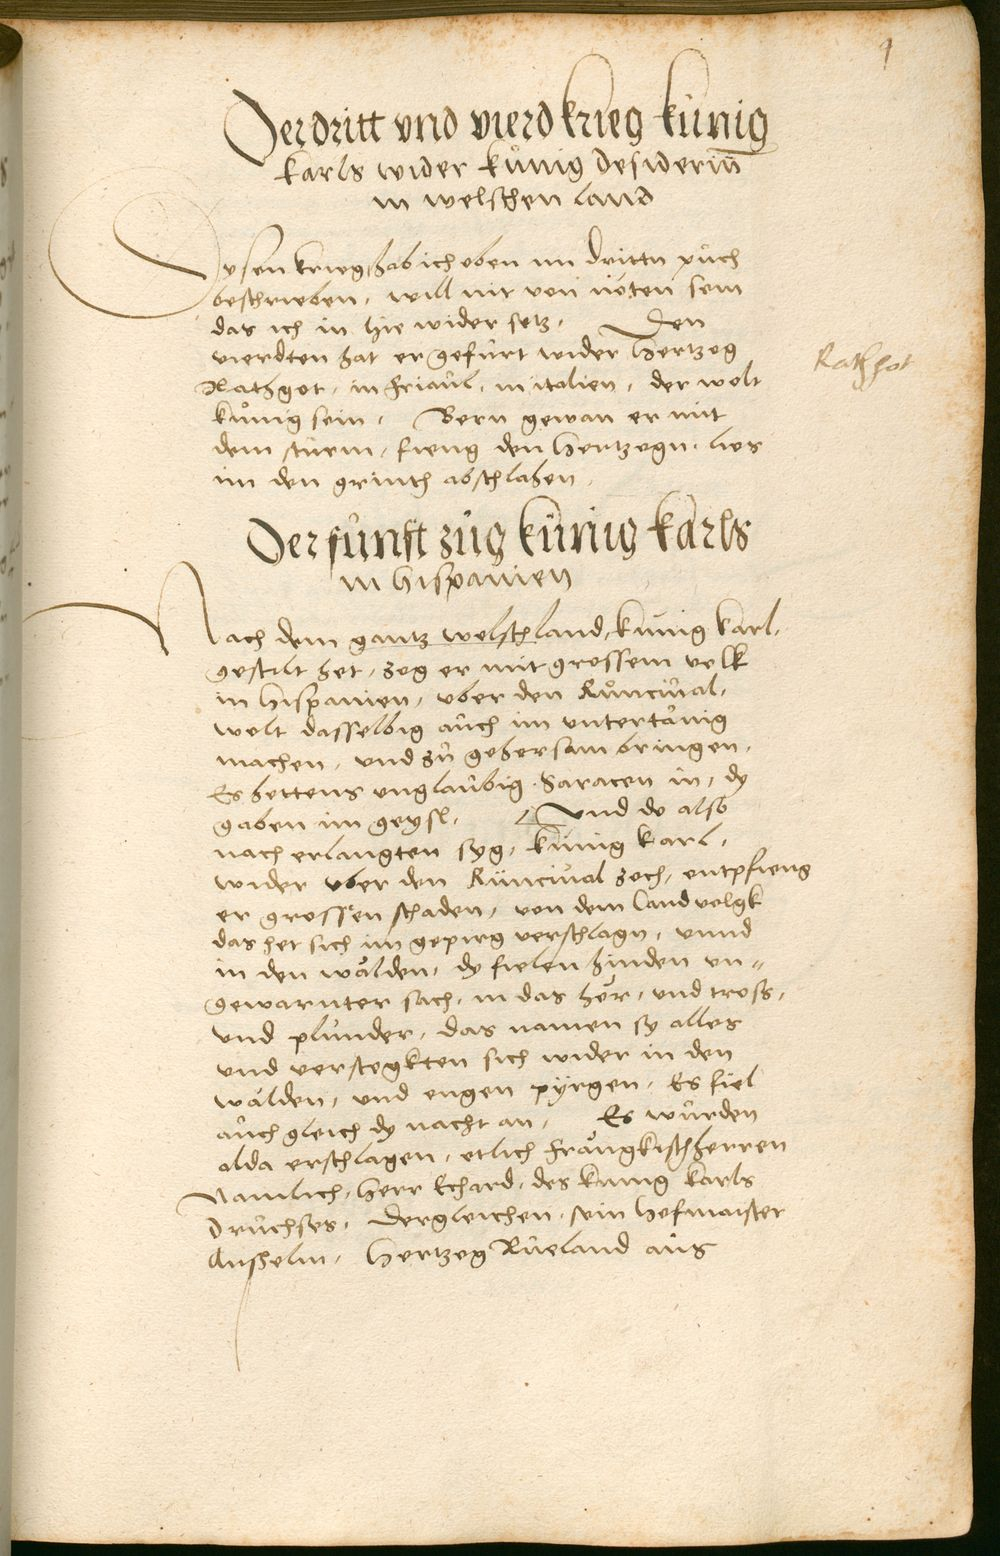 9
Der dritt vnd vierd krieg kůnig
karls wider kůnig desideriu̅
in welschen land
Dysen krieg, hab ich oben im drittn půch
beschrieben, will nit von nöten sein
das ich in hie wider setz. Den
vierdten hat er gefůrt wider hertzog
Rathgot, in Friaul, in italien, der wolt
Rathgot
kůnig sein. Bern gewan er mit
dem sturm, fieng den hertzogn, lies
im den grinth abschlahen.
Der fůnft zůg kůnig karls
in hispanien
Nach dem gantz welschland, kůnig karl,
gestilt het, zog er mit grossem volk
in hispanien, vber den Růncival,
wolt dasselbig aůch im vntertånig
machen, vnd zů gehorsam bringen.
Es hettens vnglaůbig Saracen in, dy
gaben im geysl. Vnd do also
nach erlangten syg, kůnig karl,
wider vber den Rüncival zoch, entpfieng
er grossen schaden, von dem landvolgk
das het sich im gepirg verschlagn, vnnd
in den wålden, dy fielen hinden vn„
gewarnter sach, in das hör, vnd tross,
vnd plůnder, das namen sy alles
vnd verstegkten sich wider in den
wålden, vnd engen pyrgen. Es fiel
aůch gleich dy nacht an. Es wůrden
alda erschlagen, etlich frångkisch herren
Namlich, herr Echard, des kůnig karls
Drůchses, dergleichen, sein hofmaister
Anshelm, hertzog Růeland aůs